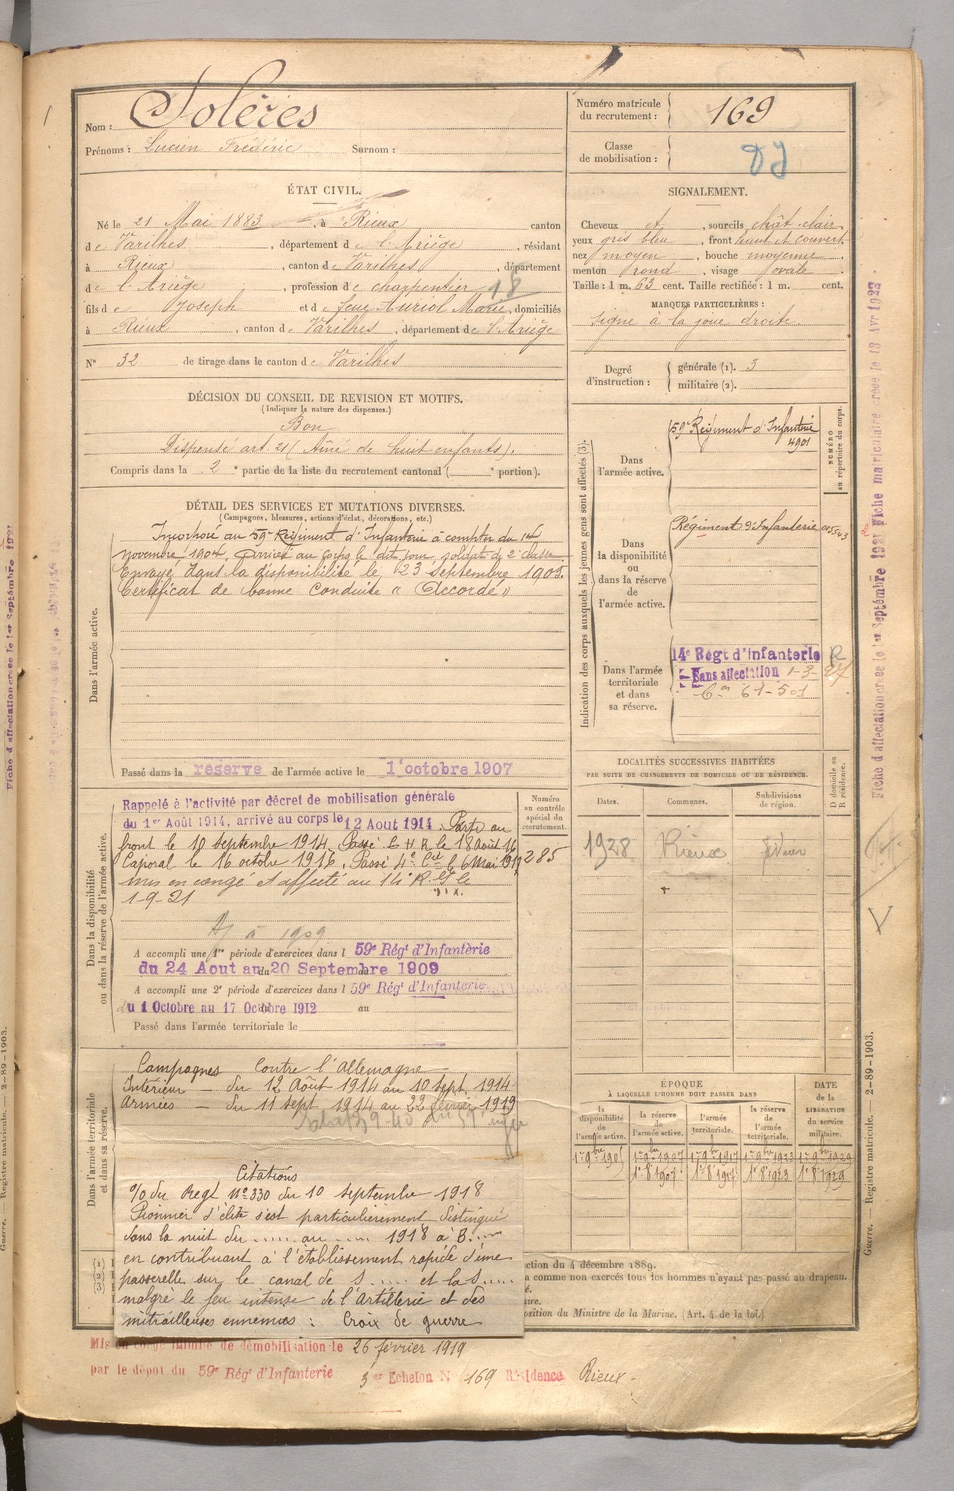 Nom : Solères
Prénoms : Lucien Frédéric Surnom :
Numéro matricule du recrutement : 169
Classe de mobilisation :
ÉTAT CIVIL.
Né le 21 Mai 1883, à Rieux canton
de Varilhes, département de l'Ariège, résidant
à Rieux, canton de Varilhes, département
de l'Ariège, profession de charpentier 18
fils de Joseph et de feue Auriol Marie, domiciliés
à Rieux, canton de Varilhes, département de l'Ariège
N° 32 de tirage dans le canton de Varilhes
SIGNALEMENT.
Cheveux et, sourcils chât. clair
yeux gris bleu, front haut et couvert,
nez moyen, bouche moyenne
menton rond, visage ovale
Taille : 1 m. 63 cent. Taille rectifiée : 1 m. cent.
MARQUES PARTICULIÈRES :
Signe à la joue droite.
Degré d'instruction : générale (1). 3
militaire (2).
DÉCISION DU CONSEIL DE REVISION ET MOTIFS.
(Indiquer la nature des dispenses.)
Bon
Dispensé art. 21 (Aîné de huit enfants).
Compris dans la 2e partie de la liste du recrutement cantonal ( e portion).
DÉTAIL DES SERVICES ET MUTATIONS DIVERSES.
(Campagnes, blessures, actions d'éclat, décorations, etc.)
Dans l'armée active.
Incorporé au 59e Régiment d'Infanterie à compter du 14
novembre 1904, Arrivé au Corps le dit jour, soldat de 2e classe
Envoyé dans la disponibilité le 23 Septembre 1905.
Certificat de bonne Conduite « Accordé »
Passé dans la réserve de l'armée active le 1er octobre 1907
Indication des corps auxquels les jeunes gens sont affectés (3).
NUMÉRO au répertoire du corps.
Dans l'armée active.
59e Régiment d'Infanterie
4901
Dans la disponibilité ou dans la réserve de l'armée active.
Régiment d'Infanterie
Dans l'armée territoriale et dans sa réserve.
14e Régt d'Infanterie
Sans affectation 1-3-27
Dans la disponibilité ou dans la réserve de l'armée active.
Rappelé à l'activité par décret de mobilisation générale
du 1er Août 1914, arrivé au corps le 12 Aout 1914. Parti au
front le 10 septembre 1914. Passé C H R le 18 août 16
Caporal le 16 octobre 1916. Passé 4e Cie le 6 Mai 1917
mis en congé et affecté au 14e R.
1-9-21
Numéro au contrôle spécial du recrutement.
285
A accompli une 1re période d'exercices dans l 59e Régt d'Infanterie
du 24 Aout au 20 Septembre 1909
A accompli une 2e période d'exercices dans l 59e Régt d'Infanterie
du 1 Octobre au 17 Octobre 1912 au
Passé dans l'armée territoriale le
LOCALITÉS SUCCESSIVES HABITÉES
PAR SUITE DE CHANGEMENTS DE DOMICILE OU DE RÉSIDENCE.
Dates. Communes. Subdivisions de région. D domicile ou R résidence.
1928 Rieux
Dans l'armée territoriale et dans sa réserve.
Campagnes Contre l'Allemagne
Intérieur — du 12 Août 1914 au 10 sept. 1914
Armées — du 11 sept 1914 au 22 février 1919
Citations
O/ du Régt N° 330 du 10 septembre 1918
Pionnier d'élite s'est particulièrement distingué
dans la nuit du ..... au ..... 1918 à B.....
en contribuant à l'établissement rapide d'une
passerelle sur le canal de S..... et la S.....
malgré le feu intense de l'artillerie et des
mitrailleuses ennemies : Croix de guerre
ÉPOQUE
À LAQUELLE L'HOMME DOIT PASSER DANS
DATE de la LIBÉRATION du service militaire.
la disponibilité de l'armée active. la réserve de l'armée active. l'armée territoriale. la réserve de l'armée territoriale.
(1) (2) (3)
ction du 4 décembre 1889.
a comme non exercés tous les hommes n'ayant pas passé au drapeau.
osition du Ministre de la Marine. (Art. 4 de la loi.)
Mis en congé illimité de démobilisation le 26 février 1919
par le dépôt du 59e Régt d'Infanterie 3er Echelon N° 169 Résidence Rieux
Guerre. — Registre matricule. — 2-89-1903.
Fiche d'affectation créée le 1er Septembre 1921 Fiche matriculaire créée le 13 Avr 1923